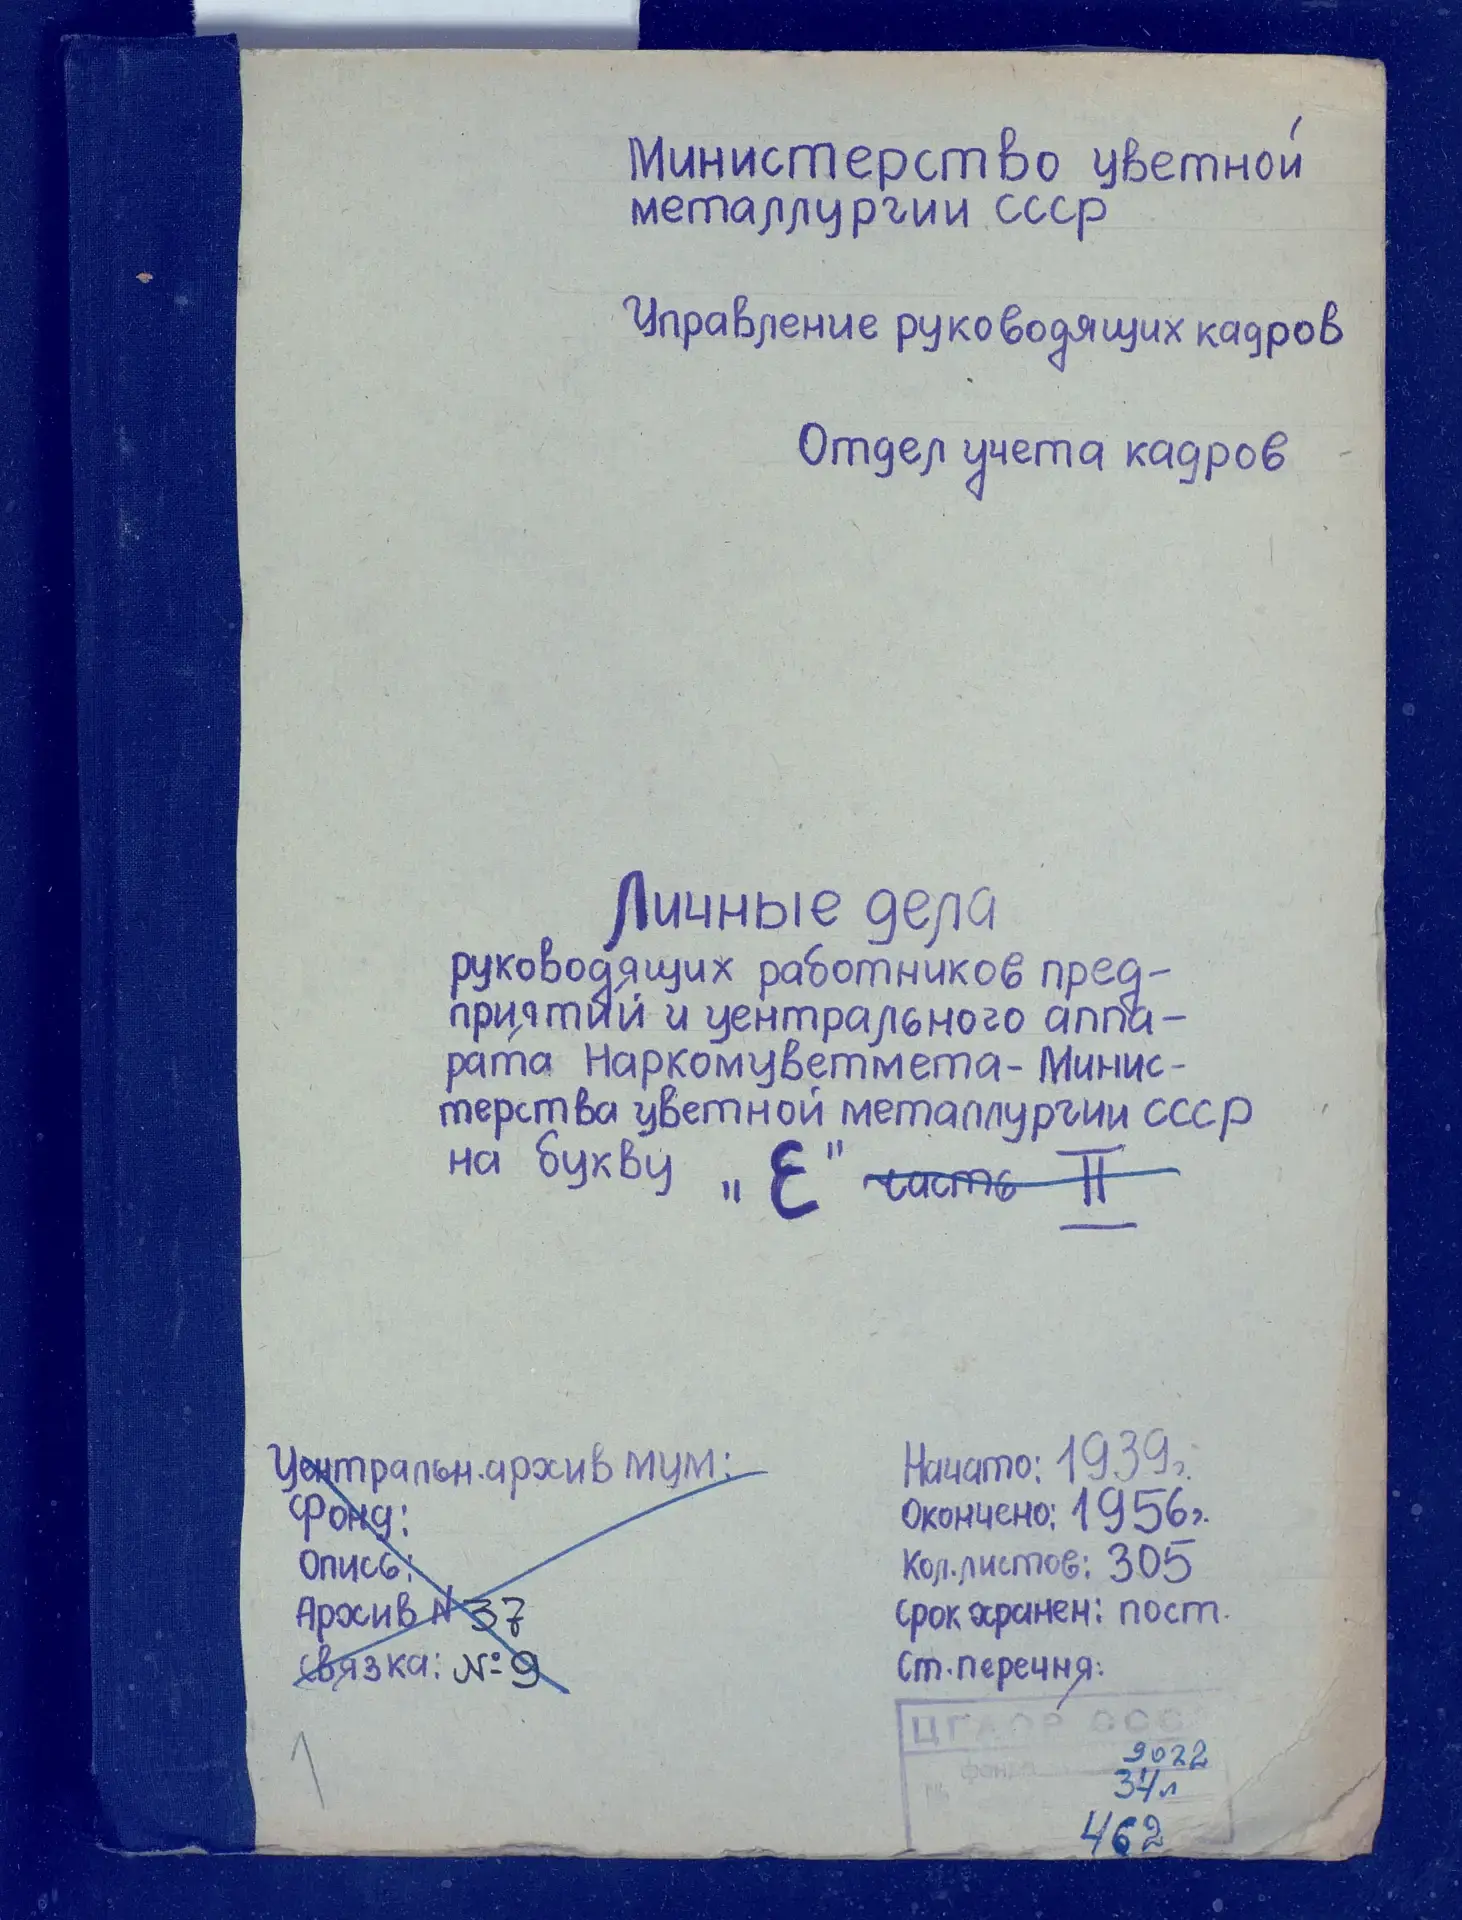 Министерство цветной
металлургии СССР
Управление руководящих кадров
Отдел учета кадров
Личные дела
руководящих работников пред-
приятий и центрального аппа-
рата Наркомцветмета - Минис-
терства цветной металлургии СССР
на букву „Е" часть II
Центральн. архив МЦМ:
Фонд:
Опись:
Архив № 37
Связка: № 9
Начато: 1939г.
Окончено: 1956г.
Кол. листов: 305
Срок хранен: пост.
Ст. перечня:
ЦГАОР СССР
фонд 9022
37л
462
1